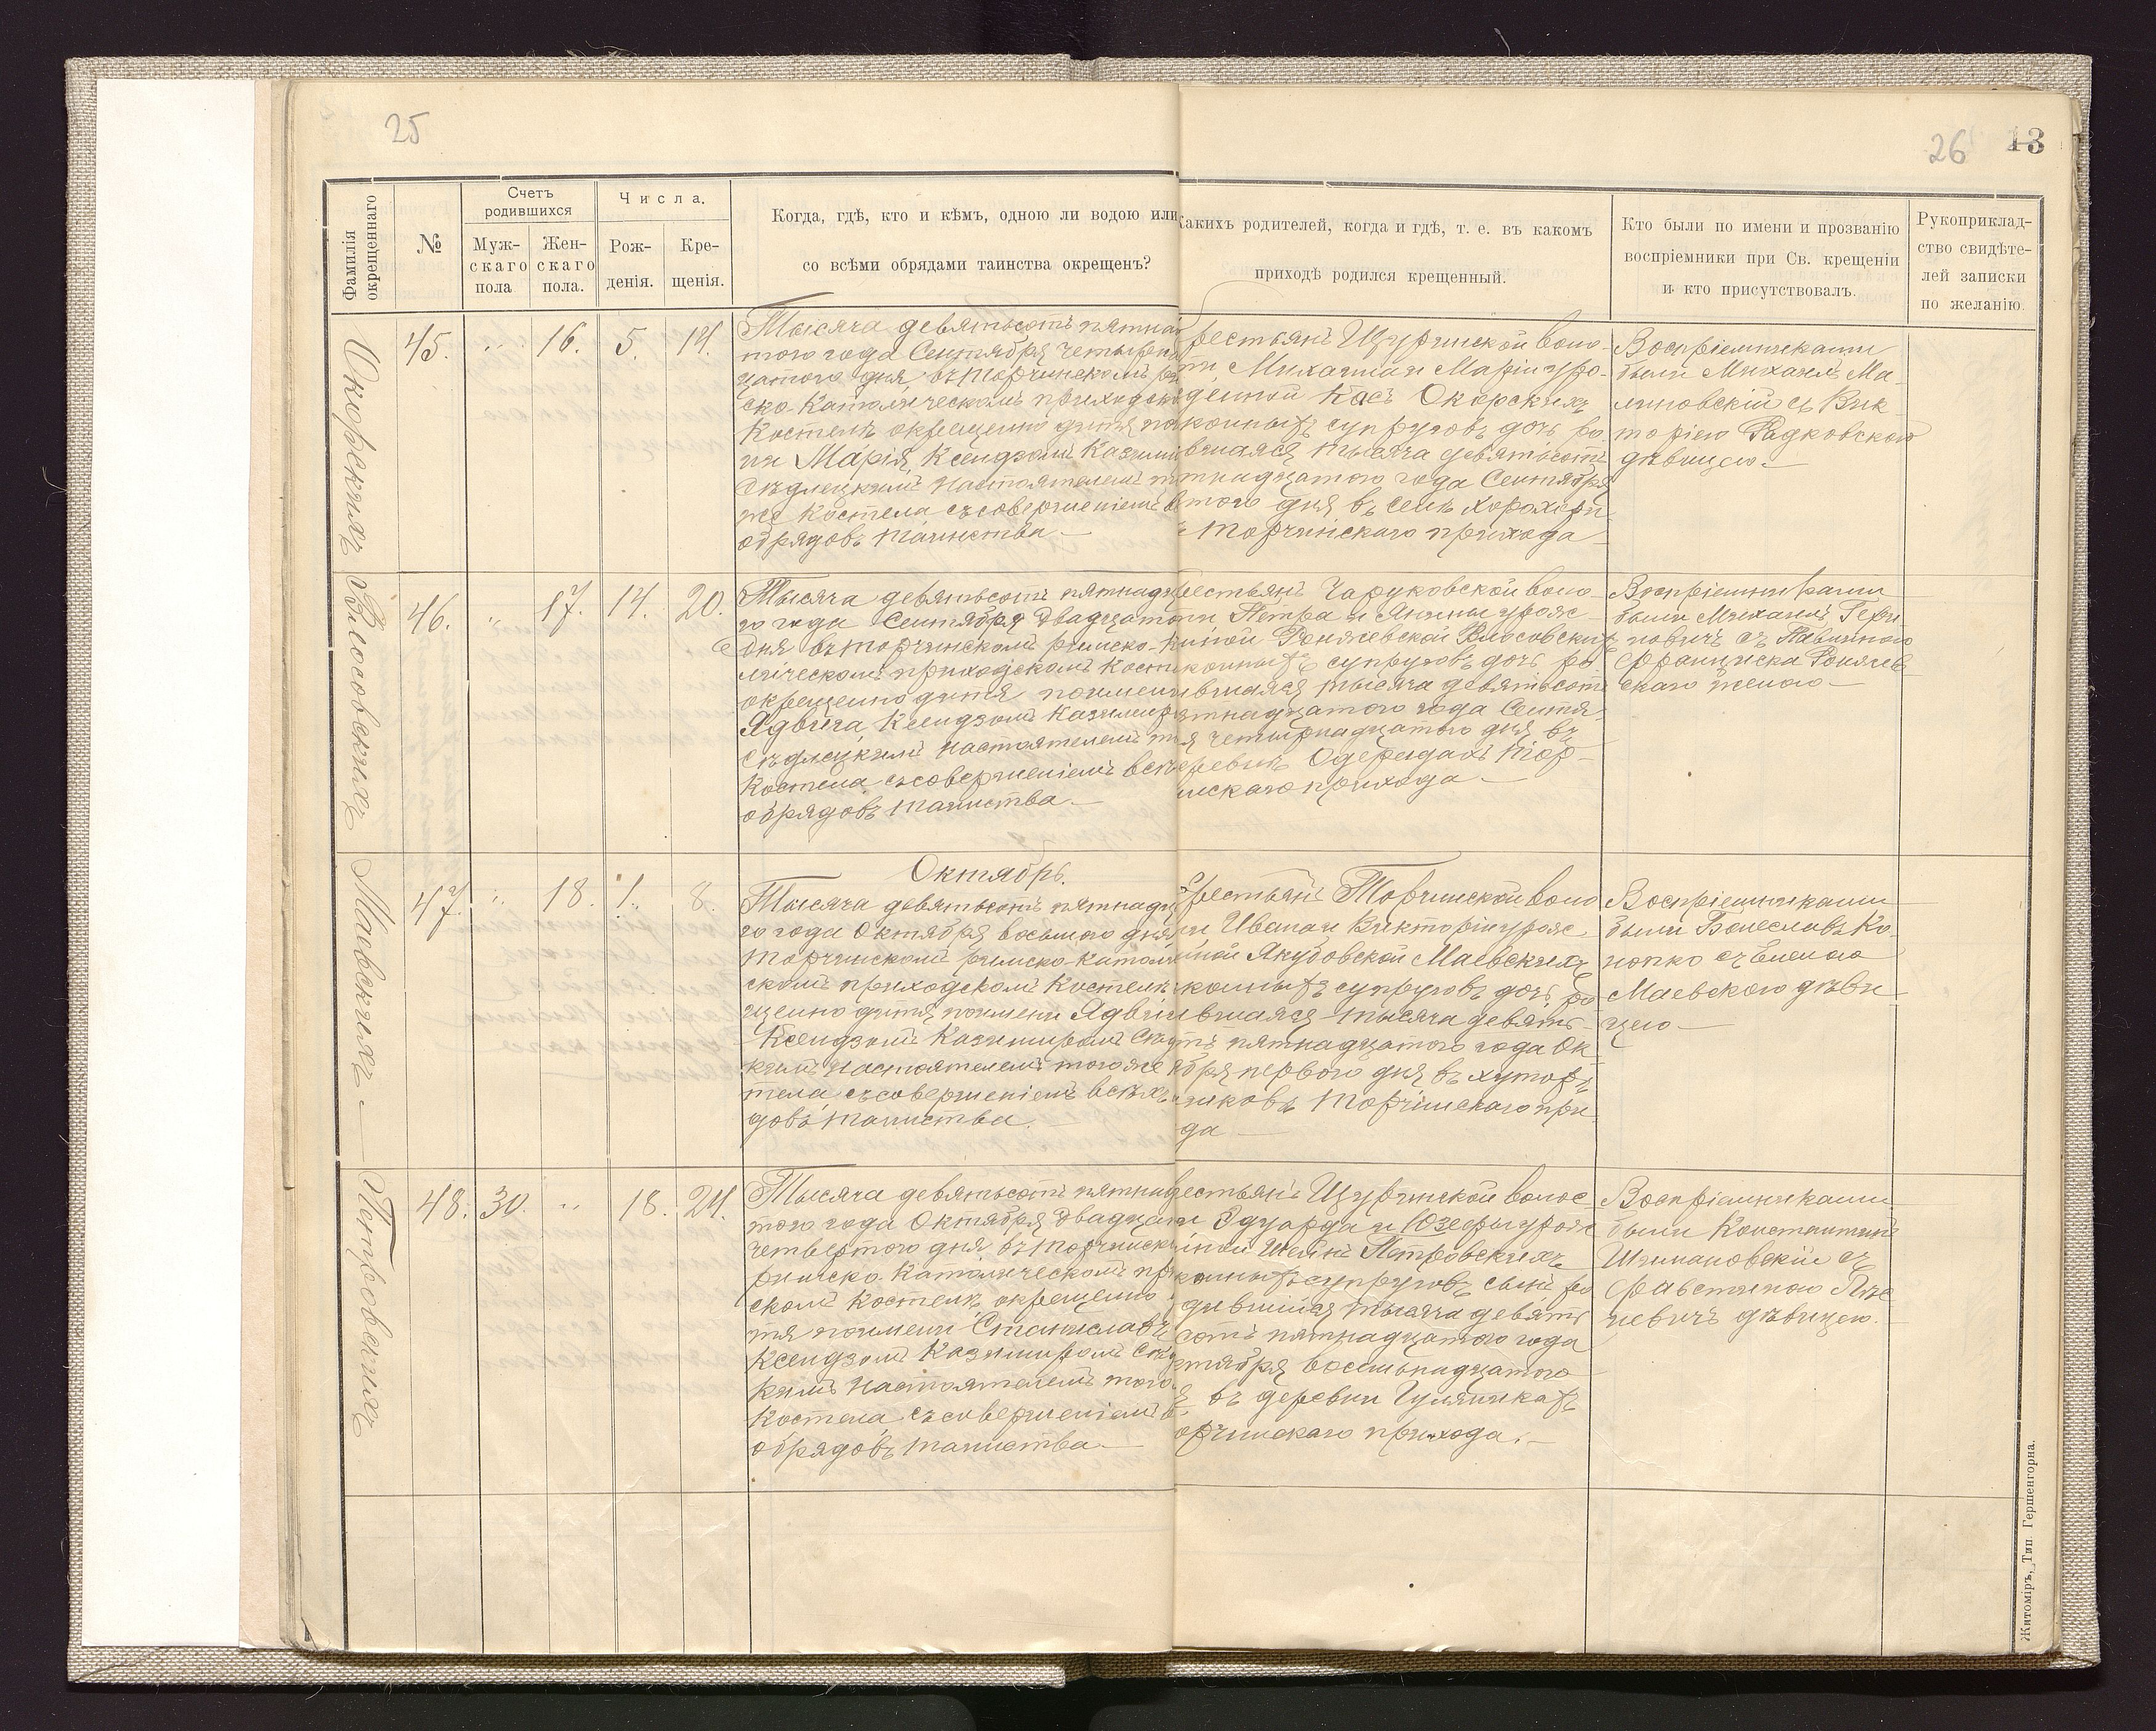 25
26 13
Фамилія
окрещеннаго
№
Счетъ
родившихся
Муж-
скаго
пола
Жен-
скаго
пола.
Числа.
Рож-
денія.
Кре-
щенія.
Когда, гдѣ, кто и кѣмъ, одною ли водою или
со всѣми обрядами таинства окрещенъ?
Какихъ родителей, когда и гдѣ, т. е. въ какомъ
приходѣ родился крещенный.
Кто были по имени и прозванію
воспріемники при Св. крещеніи
и кто присутствовалъ.
Рукоприклад-
ство свидѣте-
лей записки
по желанію.
Окорскихъ
45. " 16. 5. 14.
Тысяча девятьсотъ пятнад
того года Сентября четырна
цатого дня, въ Торчинскомъ ри
ско-Католическомъ приходско
Костелѣ окрещенно дитя по
ни Марія, Ксендзомъ Казими
Сѣдлецкимъ Настоятелемъ т
же Костела съ совершеніемъ в
обрядовъ таинства.—
рестьянъ Щуринской воло-
ти Михаила и Маріи уро-
денной Касъ Окорскихъ
конныхъ супруговъ дочь ро-
вшаяся тысяча девятьсотъ
тнадцатого года Сентября
того дня въ селѣ Хорохори
ъ Торчинскаго прихода
Воспріемниками
были Михаилъ Ма-
линовскій съ Вик-
торіею Радковскою
дѣвицею.—
Власовскихъ
46. " 17. 14. 20.
Тысяча девятьсотъ пятнадц
го года Сентября двадцато
дня въ Торчинскомъ римско-к
лическомъ приходскомъ Косте
окрещенно дитя поимени
Ядвига, Ксендзомъ Казимир
Сѣдлецкимъ Настоятелемъ т
Костела съ совершеніемъ всѣ
обрядовъ таинства.—
рестьянъ Чаруковской воло
ти, Петра и Янины урож-
нной Роняевской Власовскихъ
конныхъ супруговъ дочь ро-
вшаяся тысяча девятьсотъ
ятнадцатого года Сентя-
я четырнадцатого дня въ
еревнѣ Одерадахъ Тор-
нскаго прихода—
Воспріемниками
были Михаилъ Гери
новичъ съ Павлиною
Францишка Роняев
скаго женою—
Маевскихъ—
Октябрь.
47. " 18. 1. 8.
Тысяча девятьсотъ пятнадц
го года Октября восьмого дня
Торчинскомъ римско-католи
скомъ приходскомъ Костелѣ
щенно дитя поимени Ядвиг
Ксендзомъ Казимиромъ Сѣд
кимъ Настоятелемъ того же
тела съ совершеніемъ всѣхъ
довъ таинства.
рестьянъ Торчинской воло
ти Ивана и Викторіи урож-
нной Якубовской Маевскихъ
конныхъ супруговъ дочь ро
вшаяся тысяча девять-
тъ пятнадцатого года Ок
ября первого дня въ хуторѣ
никовъ Торчинскаго при-
да—
Воспріемниками
были Болеславъ Ко-
нопко съ Еленою
Маевскою дѣви-
цею—
Петровскихъ
48. 30. " 18. 24.
Тысяча девятьсотъ пятнад
того года Октября двадцат
четвертого дня въ Торчинск
римско-Католическомъ пр
скомъ Костелѣ окрещенно
тя поимени Станиславъ
Ксендзомъ Казимиромъ Сѣд
кимъ Настоятелемъ того
Костела съ совершеніемъ в
обрядовъ таинства—
рестьянъ Щуринской волос
и Эдуарда и Юзефы урож
нной Шейнъ Петровскихъ
конныхъ супруговъ сынъ ро
дившійся тысяча девять
сотъ пятнадцатого года
ктября восемьнадцатого
я въ деревни Гуляникахъ
орчинскаго прихода.—
Воспріемниками
были Константинъ
Шимановскій съ
Фавстиною
невичъ дѣвицею.
Житоміръ, Тип. Гершенгорна.